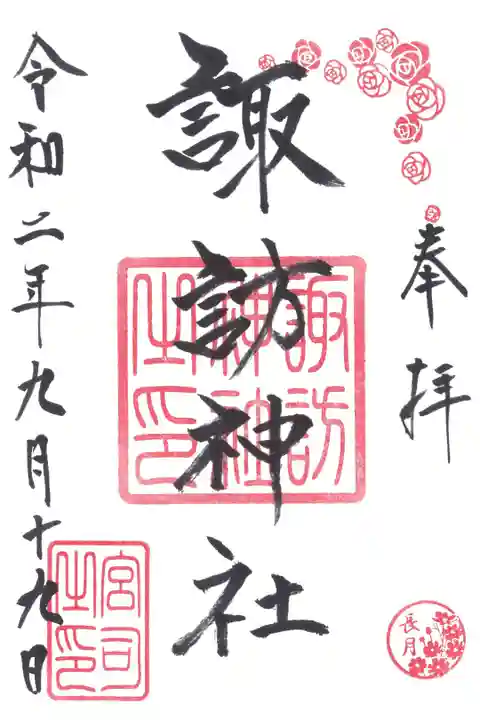 奉拝
諏訪神社
令和二年九月十九日
諏訪
神社
之印
宮司
之印
長月